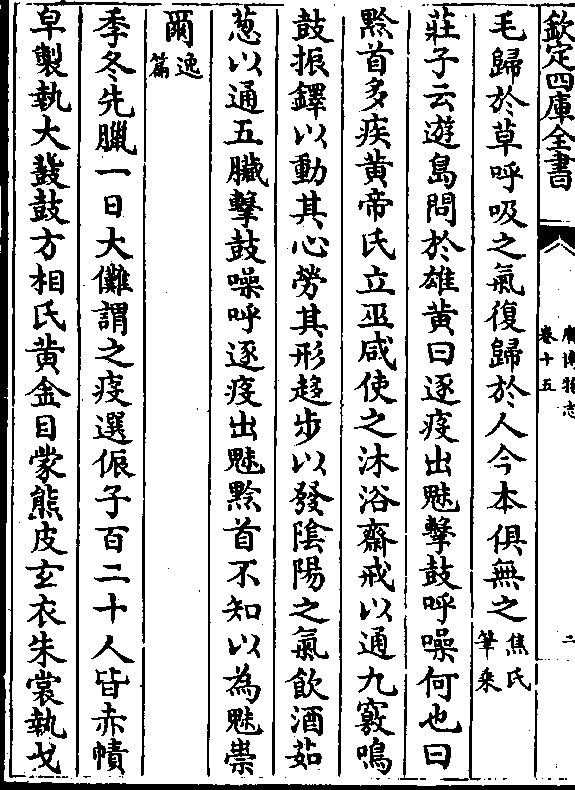 欽定四庫全書
廣博物志
卷十五
二
毛歸於草呼吸之氣復歸於人今本俱無之焦氏筆乘
莊子云遊島問於雄黃曰逐疫出魅擊鼓呼噪何也曰
黔首多疾黃帝氏立巫咸使之沐浴齋戒以通九竅鳴
鼓振鐸以動其心勞其形趍步以發陰陽之氣飲酒茹
葱以通五臟擊鼓噪呼逐疫出魅黔首不知以為魅祟
爾逸篇
季冬先臘一日大儺謂之疫選侲子百二十人皆赤幘
皁製執大鼗鼓方相氏黃金目蒙熊皮玄衣朱裳執戈